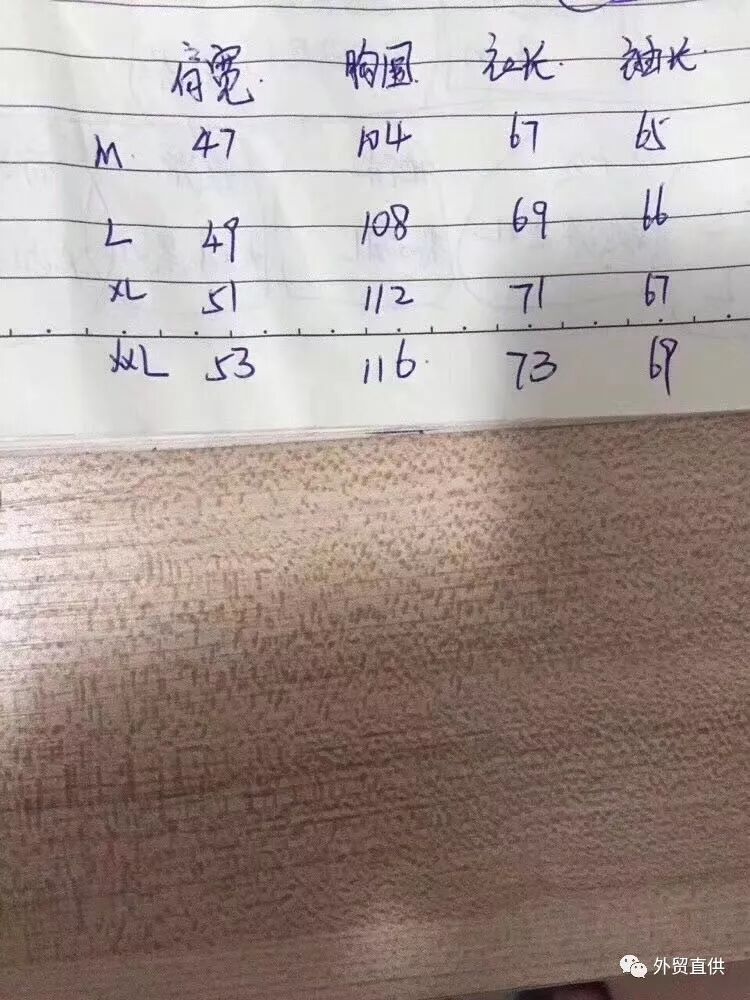 肩宽 胸围 衣长 袖长
M 47 104 67 65
L 49 108 69 66
XL 51 112 71 67
XXL 53 116 73 69
外贸直供